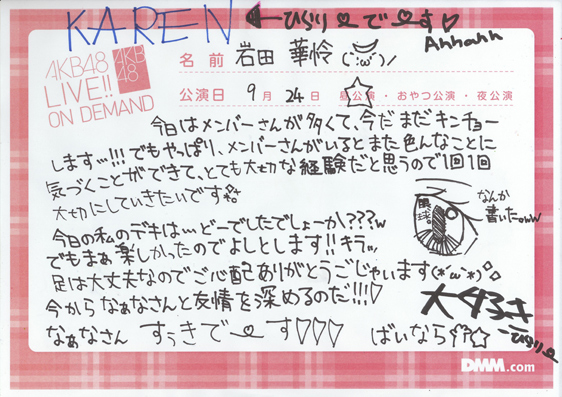 KAREN ←ひらり〜で〜す♡
Ahhahh
AKB48
LIVE!!
ON DEMAND
AKB
48
名前 岩田 華怜
公演日 9月24日 昼公演・おやつ公演・夜公演
今日はメンバーさんが多くて、今だまだキンチョー
します…!!! でもやっぱり、メンバーさんがいるとまた色んなことに
気づくことができて、とても大切な経験だと思うので1回1回
大切にしていきたいです
なんか
書いた。ww
眼球。
今日の私のデキは…どーでしたでしょーか\???w
でもまぁ楽しかったのでよしとします!! キラッ
足は大丈夫なのでご心配ありがとうごじゃいます(*´ω`*)
今からなぁなさんと友情を深めるのだ!!!
なぁなさん すぅきで〜す♡♡♡ ばいなら
大好き
ひらり
DMM.com